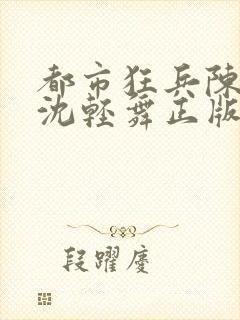 都市狂兵陳
沈輕舞正版
段躍慶